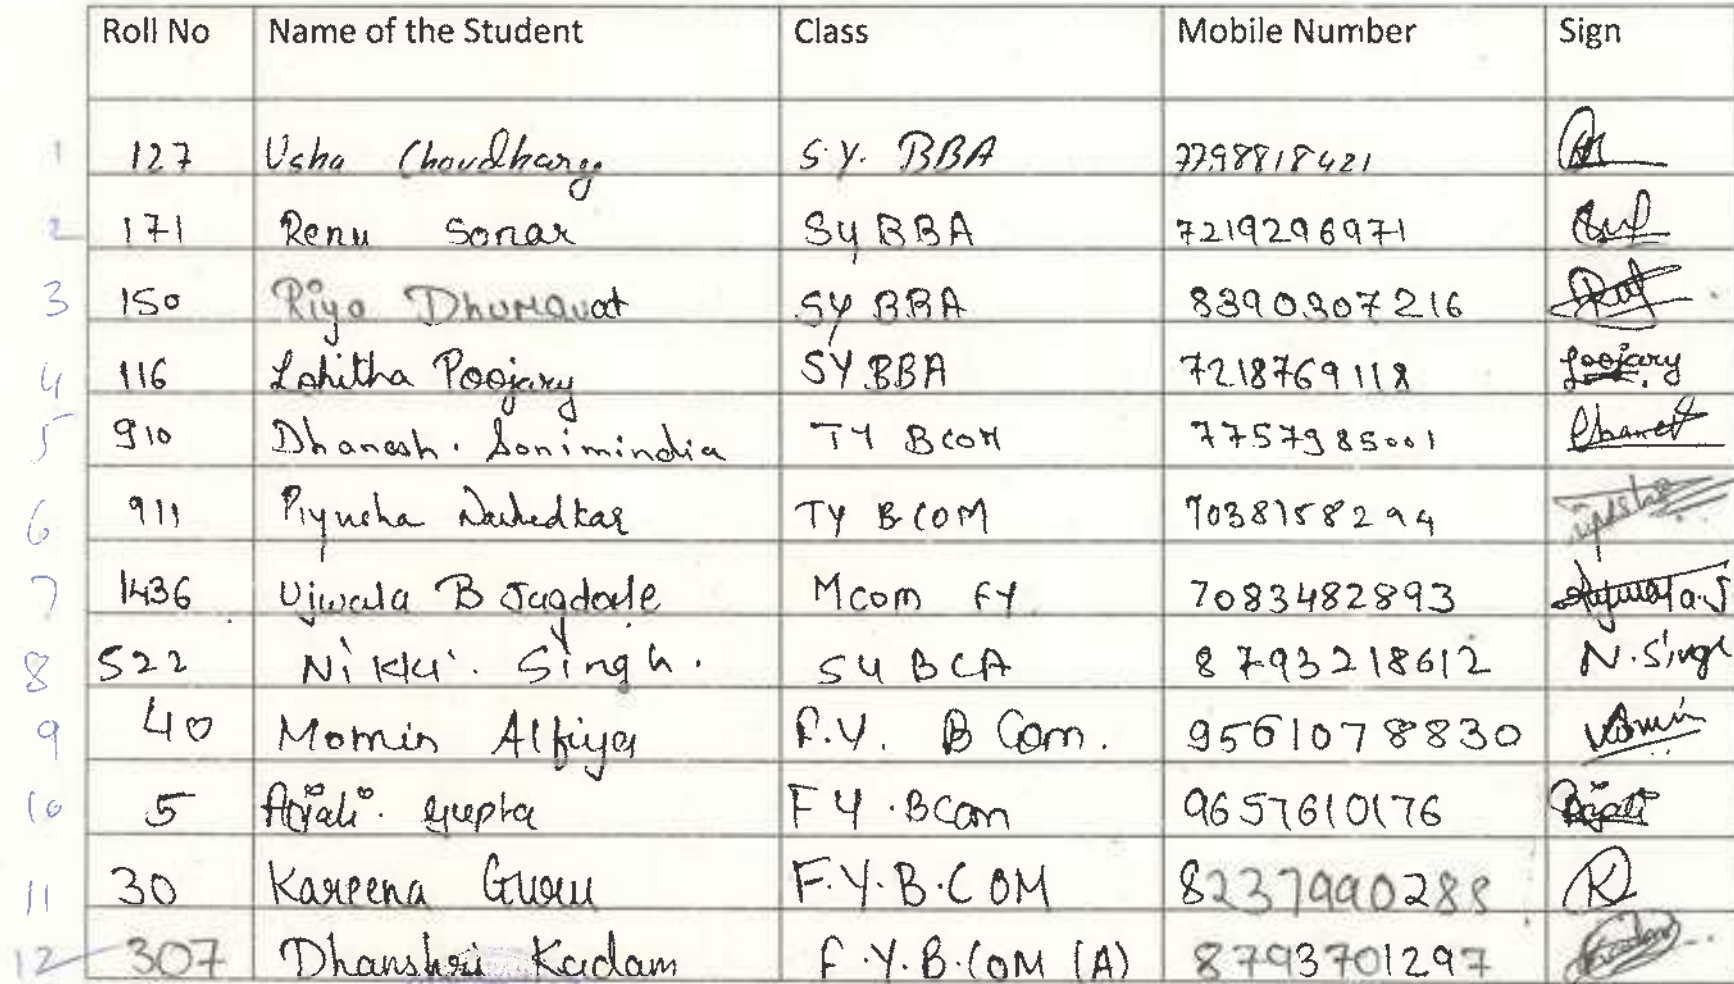 Roll No Name of the Student Class Mobile Number Sign
1 127 Usha Choudhary S.Y. BBA 7798818421
2 171 Renu Sonar SY BBA 7219296971
3 150 Riya Dhumavat SY BBA 8390307216
4 116 Lohitha Poojary SY BBA 7218769118 Poojary
5 910 Dhanesh. Sonimindia TY BCOM 7757985001
6 911 Piyusha TY BCOM 7038158294
7 1436 Ujwala B Jagdale Mcom FY 7083482893
8 522 Nikki. Singh. SY BCA 8793218612 N. Singh
9 40 Momin Alfiya F.Y. B Com. 9561078830 Momin
10 5 Anjali. Gupta FY.BCom 9657610176 Anjali
11 30 Kareena Guru F.Y.B.COM 8237990288
12 307 Dhanshri Kadam F.Y.B.COM (A) 8793701297